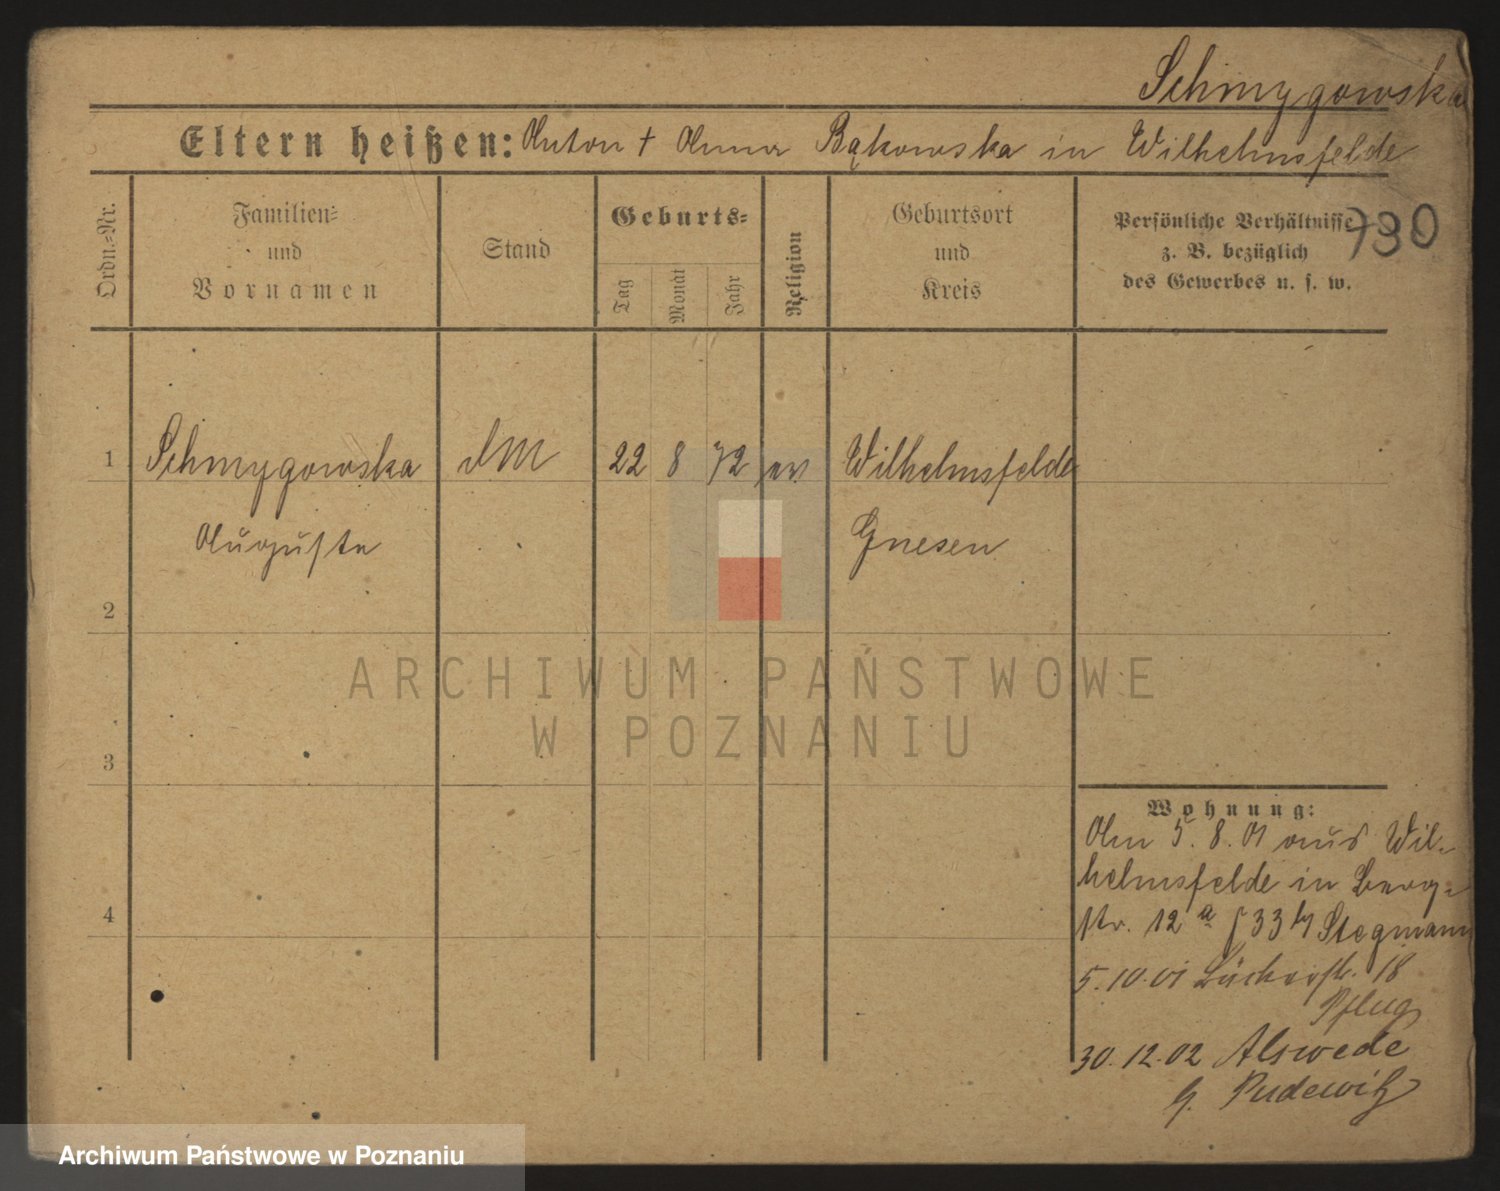 Schmygowska
Eltern heißen: Anton + Anna Bąkowska in Wilhelmsfelde
Ordn.-Nr.
Familien- und Vornamen
Stand
Geburts-
Tag
Monat
Jahr
Religion
Geburtsort und Kreis
Persönliche Verhältnisse z. B. bezüglich des Gewerbes u. s. w.
730
1 Schmygowska DM 22 8 72 ev Wilhelmsfelde
Auguste Gnesen
2
3
4
Wohnung:
Am 5.8.01 aus Wil-
helmsfelde in Berg-
str. 12a f 33 b/ Stegmann
5.10.01 Bäckerstr. 18
Pflug
30.12.02 Alswede
b. Pudewitz
ARCHIWUM PAŃSTWOWE
W POZNANIU
Archiwum Państwowe w Poznaniu